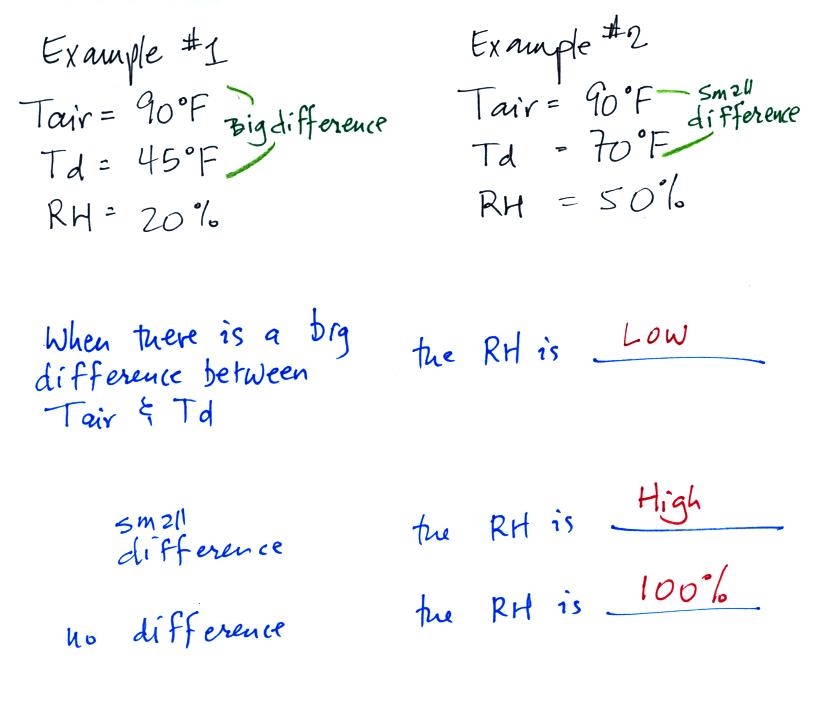 Example #1
Tair = 90°F
Big difference
Td = 45°F
RH = 20%
Example #2
Tair = 90°F
small
difference
Td = 70°F
RH = 50%
When there is a big
difference between
Tair & Td
the RH is Low
small
difference
the RH is High
no difference
the RH is 100%